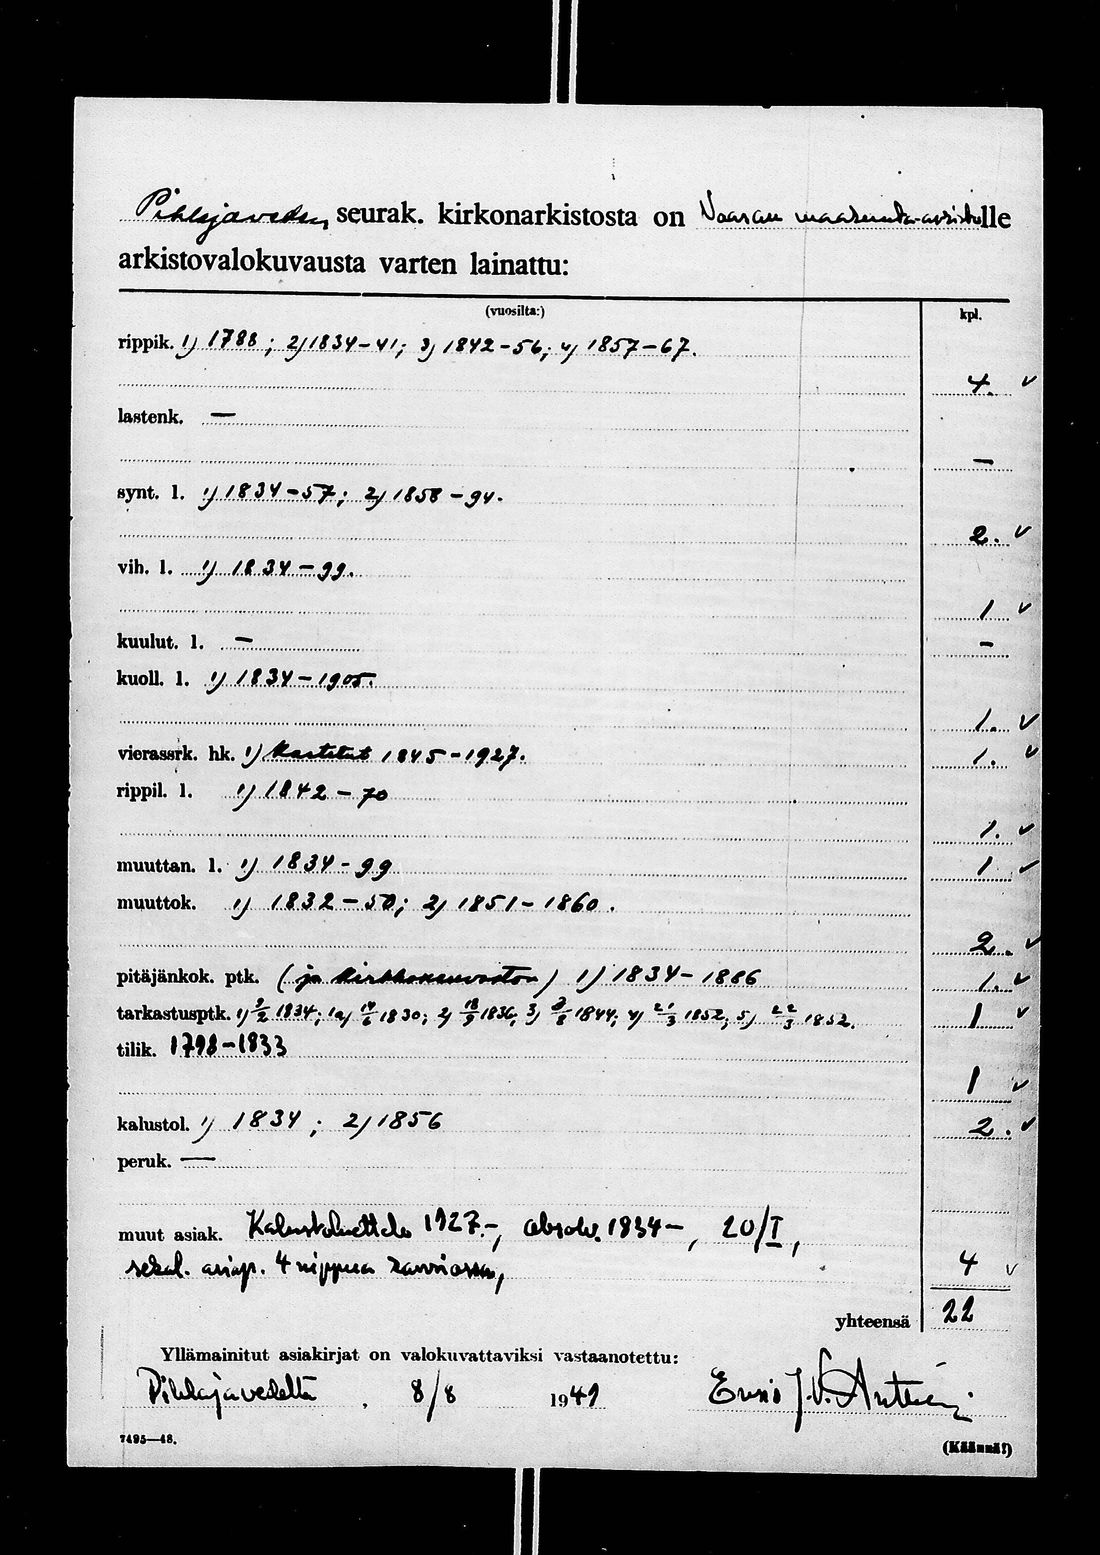 Pihlajaveden seurak. kirkonarkistosta on Vaasan maakunta-arkistolle
arkistovalokuvausta varten lainattu:
(vuosilta:) kpl.
rippik. 1) 1788; 2) 1834-41; 3) 1842-56; 4) 1857-67.
4.
lastenk. —
—
synt. l. 1) 1834-57; 2) 1858-94.
2.
vih. l. 1) 1834-99.
1
kuulut. l. — —
kuoll. l. 1) 1834-1905.
1.
vierassrk. hk. 1) Kastetut 1845-1927. 1.
rippil. l. 1) 1842-70
1.
muuttan. l. 1) 1834-99 1
muuttok. 1) 1832-50; 2) 1851-1860.
2.
pitäjänkok. ptk. (ja kirkkoneuvoston) 1) 1834-1886 1.
tarkastusptk. 1) 9/2 1834; 1a) 17/6 1830; 2) 18/9 1836; 3) 8/8 1844; 4) 21/3 1852; 5) 22/3 1852. 1
tilik. 1798-1833
1
kalustol. 1) 1834; 2) 1856 2.
peruk. —
muut asiak. Kalustoluettelo 1927-, absolv. 1834-, 20/I,
sekal. asiap. 4 nippua 4
yhteensä 22
Yllämainitut asiakirjat on valokuvattaviksi vastaanotettu:
Pihlajavedeltä. 8/8 1949
7495—48. (Käännä!)